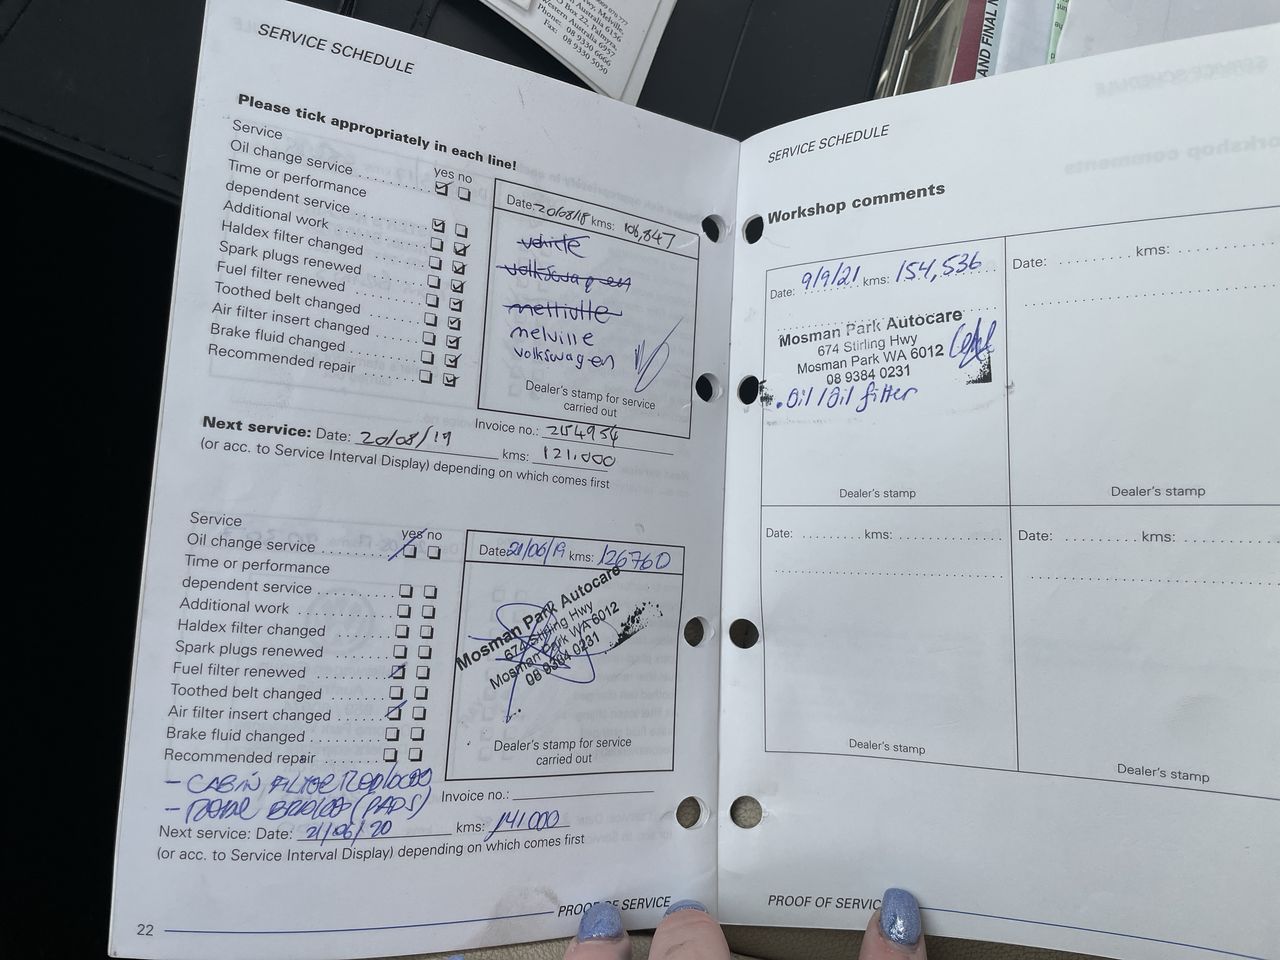 669 970 777
Hwy, Melville,
Australia 6156
PO Box 22, Palmyra,
Western Australia 6957
Phone: 08 9330 6666
Fax: 08 9330 5050
AND FINAL
SERVICE SCHEDULE
Please tick appropriately in each line!
Service
yes no
Oil change service
Time or performance
dependent service
Additional work
Haldex filter changed
Spark plugs renewed
Fuel filter renewed
Toothed belt changed
Air filter insert changed
Brake fluid changed
Recommended repair
Date: 20/08/18 kms: 106,847
vehicle
volkswagen
mellville
melville
volkswagen
Dealer's stamp for service
carried out
Invoice no.: 254954
Next service: Date: 20/08/19 kms: 121.000
(or acc. to Service Interval Display) depending on which comes first
Service
yes no
Oil change service
Time or performance
dependent service
Additional work
Haldex filter changed
Spark plugs renewed
Fuel filter renewed
Toothed belt changed
Air filter insert changed
Brake fluid changed
Recommended repair
Date: 21/06/19 kms: 126760
Mosman Park Autocare
674 Stirling Hwy
Mosman Park WA 6012
08 9384 0231
Dealer's stamp for service
carried out
- CABIN FILTER
(PADS)
Invoice no.:
Next service: Date: 21/06/20 kms: 141000
(or acc. to Service Interval Display) depending on which comes first
22
PROOF OF SERVICE
SERVICE SCHEDULE
Workshop comments
Date: 9/9/21 kms: 154,536
Mosman Park Autocare
674 Stirling Hwy
Mosman Park WA 6012
08 9384 0231
. Oil / Oil filter
Dealer's stamp
Date: kms:
Dealer's stamp
Date: kms:
Dealer's stamp
Date: kms:
Dealer's stamp
PROOF OF SERVIC